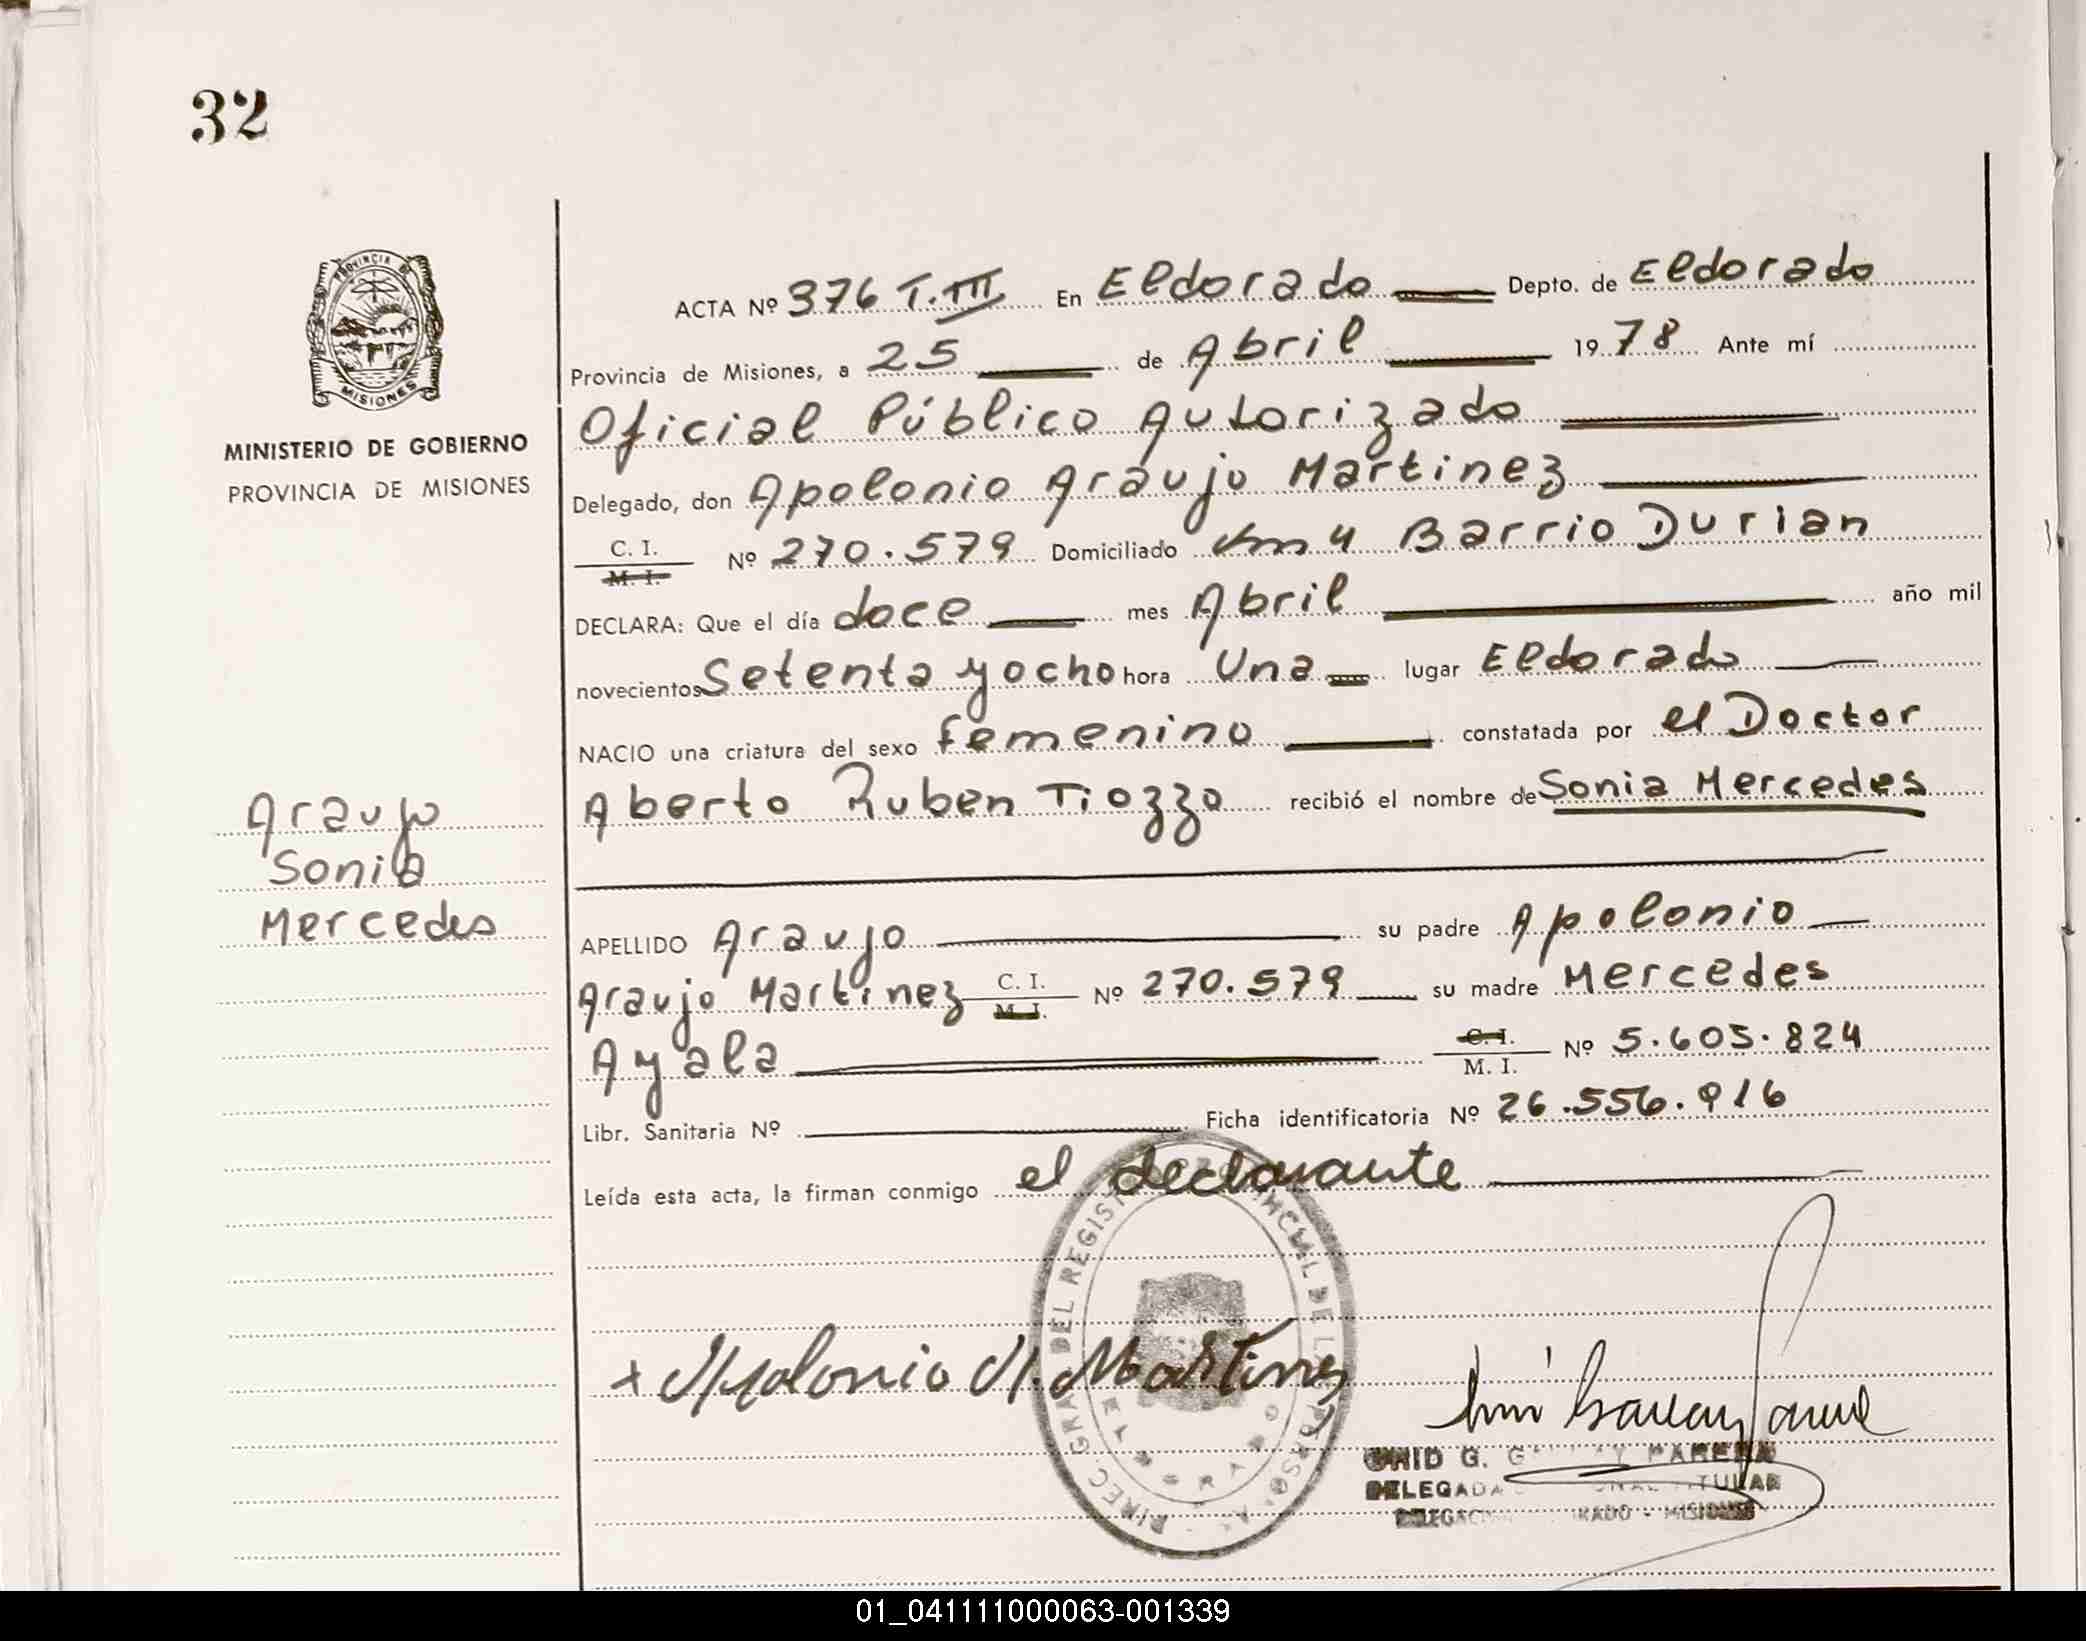 32
PROVINCIA DE
MISIONES
MINISTERIO DE GOBIERNO
PROVINCIA DE MISIONES
Araujo
Sonia
Mercedes
ACTA Nº 376 T.III En Eldorado Depto. de Eldorado
Provincia de Misiones, a 25 de Abril 1978 Ante mí
Oficial Público Autorizado
Delegado, don Apolonio Araujo Martinez
C. I. M. I. Nº 270.579 Domiciliado Km 4 Barrio Durian
DECLARA: Que el día doce mes Abril año mil
novecientos Setenta y ocho hora Una lugar Eldorado
NACIO una criatura del sexo femenino constatada por el Doctor
Aberto Ruben Tiozzo recibió el nombre de Sonia Mercedes
APELLIDO Araujo su padre Apolonio
Araujo Martinez C. I. M. I. Nº 270.579 su madre Mercedes
Ayala C. I. M. I. Nº 5.605.824
Libr. Sanitaria Nº Ficha identificatoria Nº 26.556.916
Leída esta acta, la firman conmigo el declarante
DIREC. GRAL. DEL REGIST DE L
ELDORADO
x Apolonio A. Martinez
G. PARERA
DELEGADA TITULAR
MISIONES
01_041111000063-001339